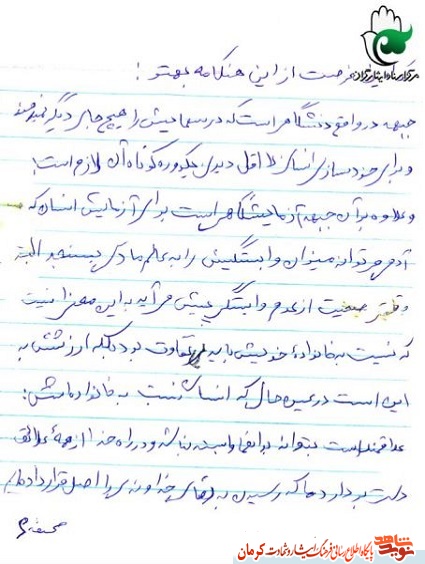 مرکز اسناد ایثارگران
فرصت از این هنگامه بهتر :
جبهه در واقع دانشگاهی است که درسهایش را هیچ جای دیگر نمی‌دهند
و برای خودسازی انسان لااقل دیدن یک دوره کوتاه آن لازم است
و علاوه بر آن جبهه آزمایشگاهی است برای آزمایش انسان که
آدم می‌تواند میزان وابستگیش را به عالم مادی بسنجد البته
وقتی صحبت از عدم وابستگی پیش می‌آید به این معنی نیست
که نسبت به خانواده خویش باید بی تفاوت بود بلکه ارزشش به
این است در عین حال که انسان نسبت به خانواده‌اش :
علاقمند است بتواند به آنها وابسته نباشد و در راه خدا از همه علائق
دست بردارد ما که رسیدن به لقای خداوندی را اصل قرار داده‌ایم
صفحه ۶
نوید شاهد
پایگاه اطلاع رسانی فرهنگ ایثار و شهادت کرمان